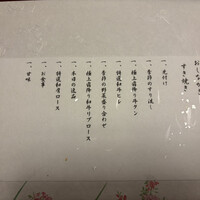 おしながき
すき焼き
一、先付け
一、季節のすり流し
一、極上霜降り牛タン
一、特選和牛ヒレ
一、季節の野菜盛り合わせ
一、極上霜降り和牛リブロース
一、本日の逸品
一、特選和牛肩ロース
一、お食事
一、甘味